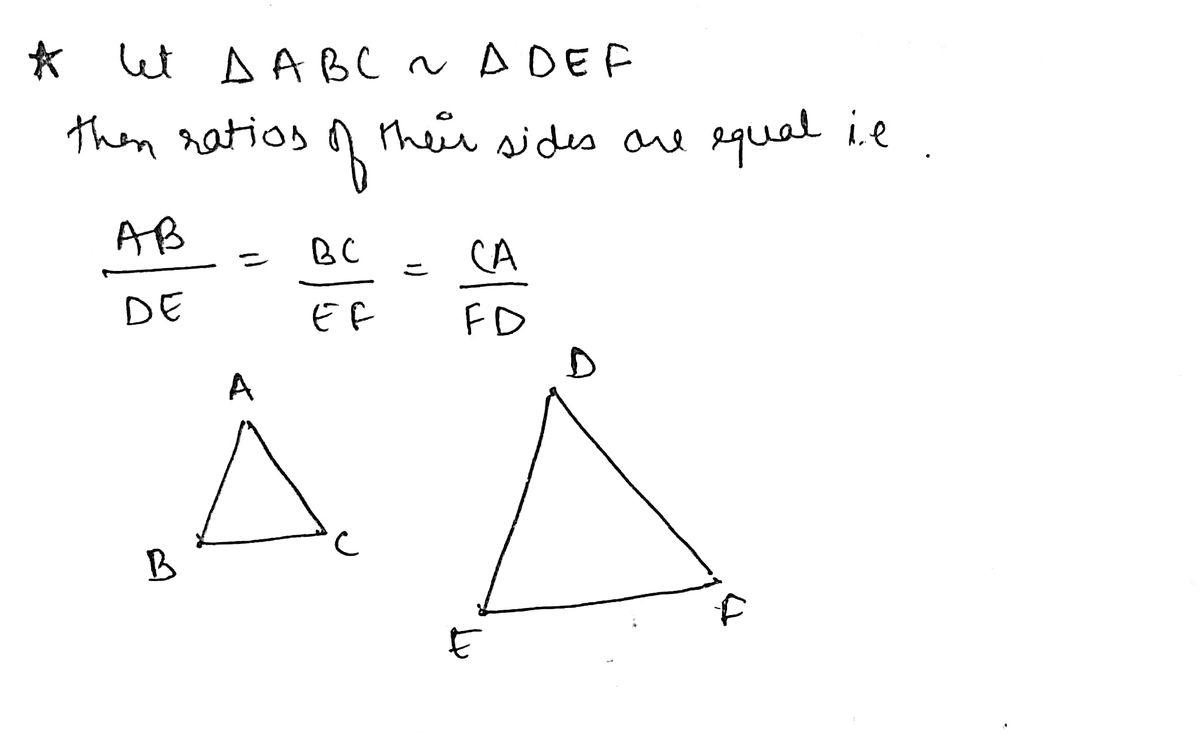 ☆ let Δ ABC ~ Δ DEF
then ratios of their sides are equal i.e.
AB/DE = BC/EF = CA/FD
A D
B C
E F